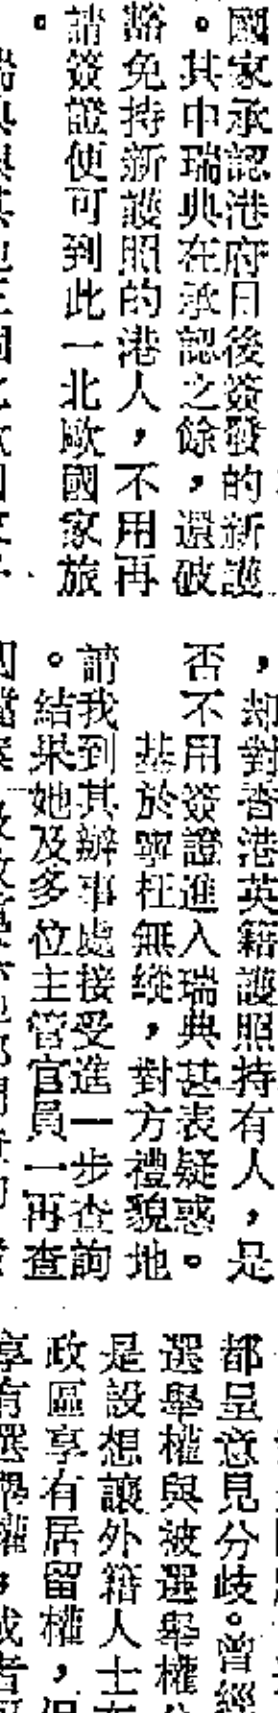 國家承認港府日後簽發的新護
。其中瑞典在承認之餘，還破
豁免持新護照的港人，不用再
請簽證便可到此一北歐國家旅
。
，却對香港英籍護照持有人，是
否不用簽證進入瑞典甚表疑惑。
基於寧枉無縱，對方禮貌地
請我到其辦事處接受進一步查詢
。結果她及多位主管官員一再查
都呈意見分歧。曾經
選舉權與被選舉權
是設想讓外籍人士
政區享有居留權，
享有選舉權，或者